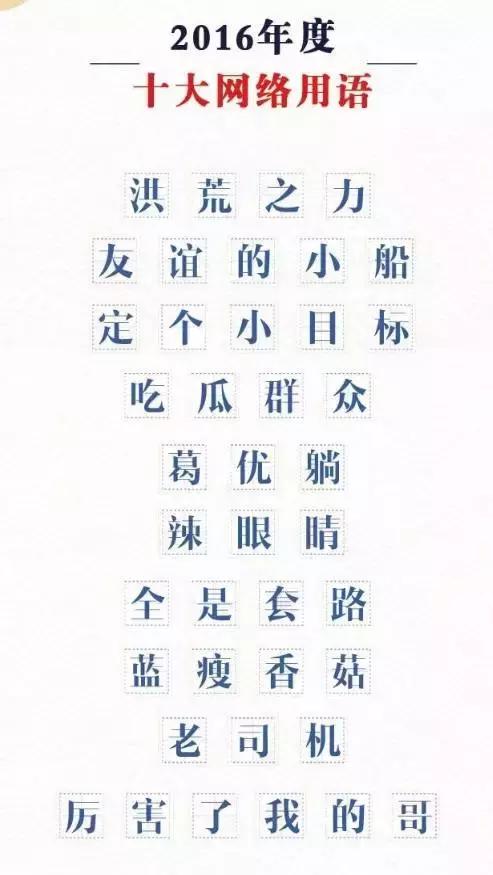 2016年度
十大网络用语
洪荒之力
友谊的小船
定个小目标
吃瓜群众
葛优躺
辣眼睛
全是套路
蓝瘦香菇
老司机
厉害了我的哥